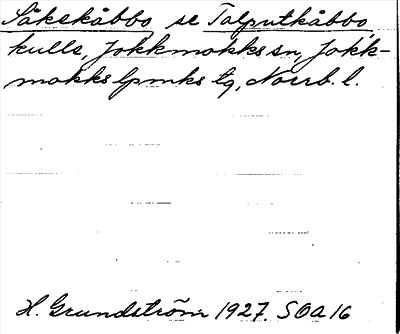 Säkskåbbo se Talputkåbbo,
kulle, Jokkmokks sn, Jokk-
mokks lpmks tg, Norrb. l.
H. Grundström 1927. SOA 16